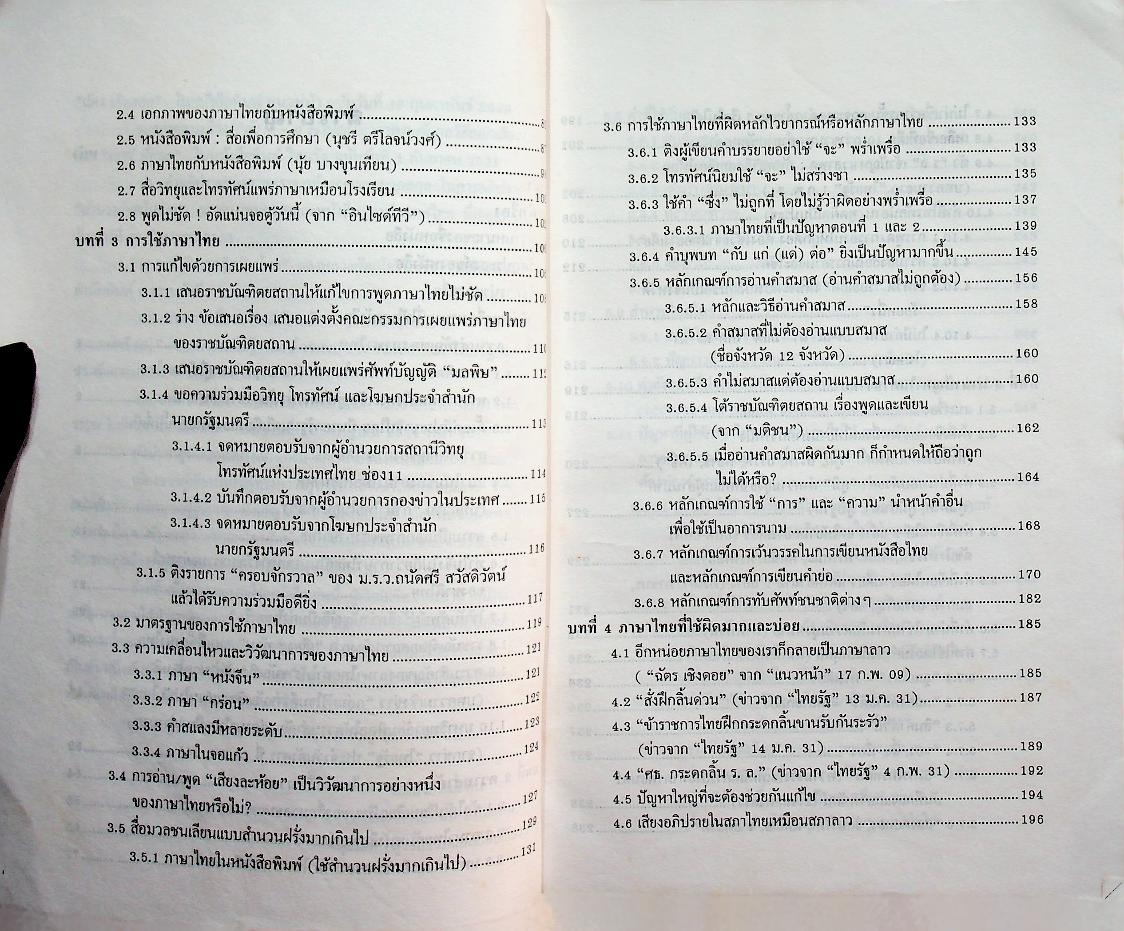 2.4 เอกภาพของภาษาไทยกับหนังสือพิมพ์
2.5 หนังสือพิมพ์ : สื่อเพื่อการศึกษา (นุชรี ตรีโลจน์วงศ์)
2.6 ภาษาไทยกับหนังสือพิมพ์ (นุ้ย บางขุนเทียน)
2.7 สื่อวิทยุและโทรทัศน์แพร่ภาษาเหมือนโรงเรียน
2.8 พูดไม่ชัด ! อัดแน่นจอตู้วันนี้ (จาก “อินไซด์ทีวี”)
บทที่ 3 การใช้ภาษาไทย
3.1 การแก้ไขด้วยการเผยแพร่
3.1.1 เสนอราชบัณฑิตยสถานให้แก้ไขการพูดภาษาไทยไม่ชัด
3.1.2 ร่าง ข้อเสนอเรื่อง เสนอแต่งตั้งคณะกรรมการเผยแพร่ภาษาไทย
ของราชบัณฑิตยสถาน
3.1.3 เสนอราชบัณฑิตยสถานให้เผยแพร่ศัพท์บัญญัติ “มลพิษ”
3.1.4 ขอความร่วมมือวิทยุ โทรทัศน์ และโฆษกประจำสำนัก
นายกรัฐมนตรี ........ 113
3.1.4.1 จดหมายตอบรับจากผู้อำนวยการสถานีวิทยุ
โทรทัศน์แห่งประเทศไทย ช่อง11 ........ 114
3.1.4.2 บันทึกตอบรับจากผู้อำนวยการกองข่าวในประเทศ ........ 115
3.1.4.3 จดหมายตอบรับจากโฆษกประจำสำนัก
นายกรัฐมนตรี ........ 116
3.1.5 ติงรายการ “ครอบจักรวาล” ของ ม.ร.ว.ถนัดศรี สวัสดิวัตน์
แล้วได้รับความร่วมมือดียิ่ง ........ 117
3.2 มาตรฐานของการใช้ภาษาไทย ........ 119
3.3 ความเคลื่อนไหวและวิวัฒนาการของภาษาไทย ........ 121
3.3.1 ภาษา “หนังจีน” ........ 121
3.3.2 ภาษา “กร่อน” ........ 122
3.3.3 คำสแลงมีหลายระดับ ........ 123
3.3.4 ภาษาในจอแก้ว ........ 124
3.4 การอ่าน/พูด “เสียงละห้อย” เป็นวิวัฒนาการอย่างหนึ่ง
ของภาษาไทยหรือไม่? ........ 127
3.5 สื่อมวลชนเลียนแบบสำนวนฝรั่งมากเกินไป ........ 129
3.5.1 ภาษาไทยในหนังสือพิมพ์ (ใช้สำนวนฝรั่งมากเกินไป) ........ 131
3.6 การใช้ภาษาไทยที่ผิดหลักไวยากรณ์หรือหลักภาษาไทย ........ 133
3.6.1 ติงผู้เขียนคำบรรยายอย่าใช้ “จะ” พร่ำเพรื่อ ........ 133
3.6.2 โทรทัศน์นิยมใช้ “จะ” ไม่สร่างซา ........ 135
3.6.3 ใช้คำ “ซึ่ง” ไม่ถูกที่ โดยไม่รู้ว่าผิดอย่างพร่ำเพรื่อ ........ 137
3.6.3.1 ภาษาไทยที่เป็นปัญหาตอนที่ 1 และ 2 ........ 139
3.6.4 คำบุพบท “กับ แก่ (แด่) ต่อ” ยิ่งเป็นปัญหามากขึ้น ........ 145
3.6.5 หลักเกณฑ์การอ่านคำสมาส (อ่านคำสมาสไม่ถูกต้อง) ........ 156
3.6.5.1 หลักและวิธีอ่านคำสมาส ........ 158
3.6.5.2 คำสมาสที่ไม่ต้องอ่านแบบสมาส
(ชื่อจังหวัด 12 จังหวัด) ........ 160
3.6.5.3 คำไม่สมาสแต่ต้องอ่านแบบสมาส ........ 160
3.6.5.4 โต้ราชบัณฑิตยสถาน เรื่องพูดและเขียน
(จาก “มติชน”) ........ 162
3.6.5.5 เมื่ออ่านคำสมาสผิดกันมาก ก็กำหนดให้ถือว่าถูก
ไม่ได้หรือ? ........ 164
3.6.6 หลักเกณฑ์การใช้ “การ” และ “ความ” นำหน้าคำอื่น
เพื่อใช้เป็นอาการนาม ........ 168
3.6.7 หลักเกณฑ์การเว้นวรรคในการเขียนหนังสือไทย
และหลักเกณฑ์การเขียนคำย่อ ........ 170
3.6.8 หลักเกณฑ์การทับศัพท์ชนชาติต่างๆ ........ 182
บทที่ 4 ภาษาไทยที่ใช้ผิดมากและบ่อย ........ 185
4.1 อีกหน่อยภาษาไทยของเราก็กลายเป็นภาษาลาว
( “ฉัตร เชิงดอย” จาก “แนวหน้า” 17 ก.พ. 09) ........ 185
4.2 “สั่งฝึกลิ้นด่วน” (ข่าวจาก “ไทยรัฐ” 13 ม.ค. 31) ........ 187
4.3 “ข้าราชการไทยฝึกกระดกลิ้นขานรับกันระรัว”
(ข่าวจาก “ไทยรัฐ” 14 ม.ค. 31) ........ 189
4.4 “ศธ. กระดกลิ้น ร. ล.” (ข่าวจาก “ไทยรัฐ” 4 ก.พ. 31) ........ 192
4.5 ปัญหาใหญ่ที่จะต้องช่วยกันแก้ไข ........ 194
4.6 เสียงอภิปรายในสภาไทยเหมือนสภาลาว ........ 196